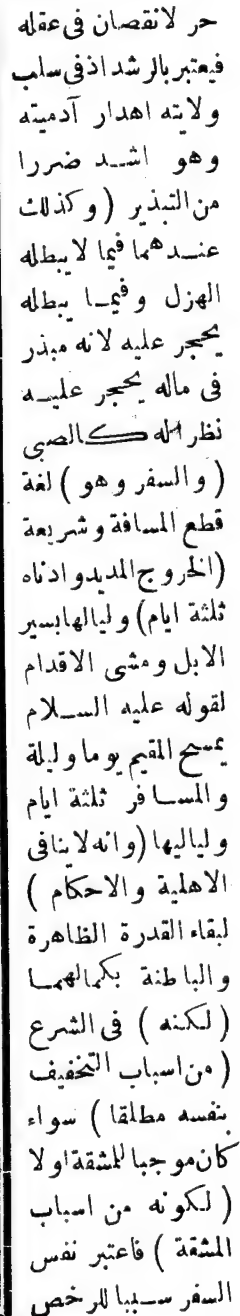 حر لانقصان فى عقله
فيعتبر بالرشد اذفى سلب
ولايته اهدار آدميته
وهو اشد ضررا
من التبذير ( وكذلك
عندهما فيما لايبطله
الهزل وفيما يبطله
يحجر عليه لانه مبذر
فى ماله يحجر عليه
نظراله كالصبى
( والسفر وهو ) لغة
قطع المسافة وشريعة
(الخروج المديد وادناه
ثلثة ايام) ولياليها بسير
الابل ومشى الاقدام
لقوله عليه السلام
يمسح المقيم يوما وليلة
والمسافر ثلثة ايام
ولياليها (وانه لاينافى
الاهلية والاحكام )
لبقاء القدرة الظاهرة
والباطنة بكمالهما
( لكنه ) فى الشرع
( من اسباب التخفيف
بنفسه مطلقا ) سواء
كان موجبا للمشقة اولا
( لكونه من اسباب
المشقة ) فاعتبر نفس
السفر سببا للرخص